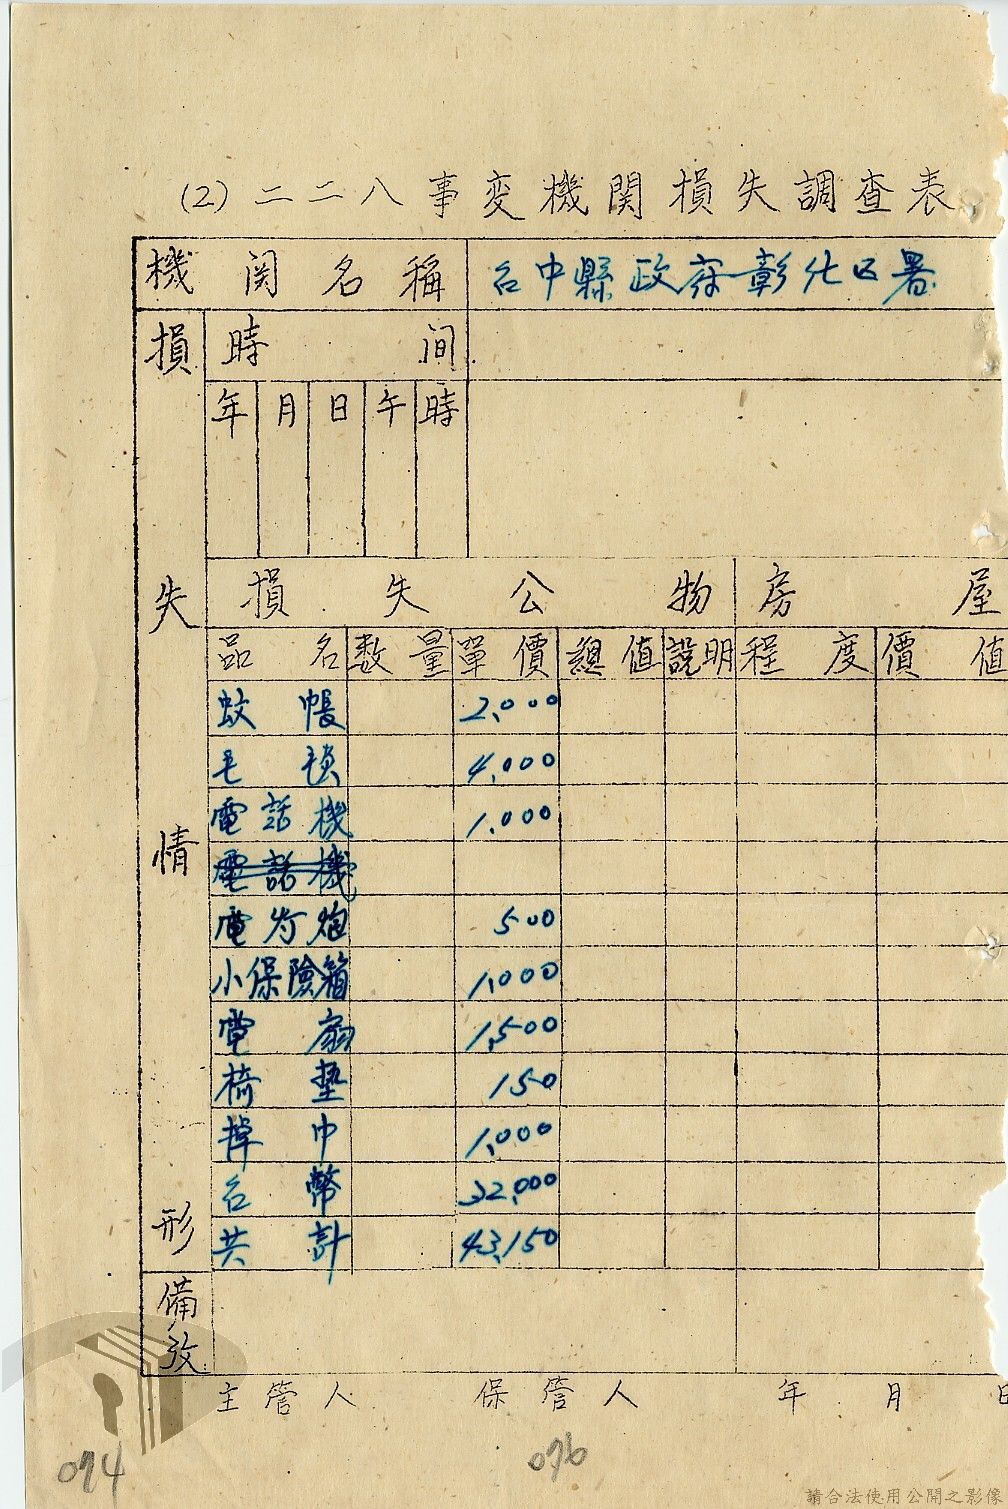 (2)二二八事変機関損失調查表
機関名稱 台中縣政府彰化区署
損失情形
時间
年 月 日 午 時
損失公物 房屋
品名 数量 單價 總值 説明 程度 價值
蚊帳 2,000
毛毯 4,000
電話機 1,000
電話機
電灯炮 500
小保險箱 1,000
電扇 1,500
椅墊 150
掉巾 1,000
台幣 32,000
共計 43,150
備攷
主管人 保管人 年 月 日
074 076
請合法使用公開之影像